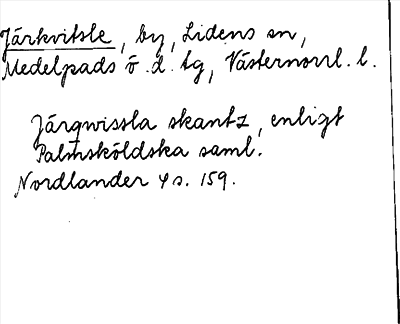 Järkvitsle, by, Lidens sn,
Medelpads ö. d. tg, Västernorrl. l.
Järqwissla skantz, enligt
Palmsköldska saml.
Nordlander 4 s. 159.